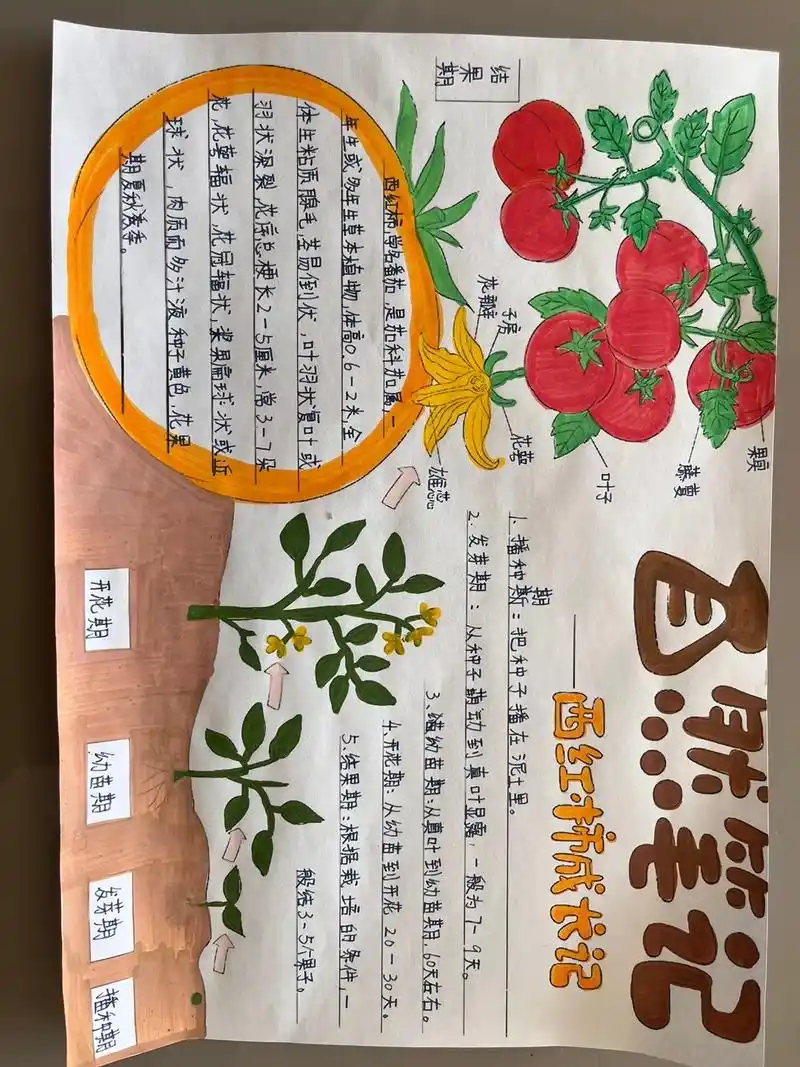 自然笔记
西红柿成长记
结果期
果实
藤蔓
叶子
子房
花瓣
花萼
雄蕊
1.播种期：把种子播在泥土里。
2.发芽期：从种子萌动到真叶显露，一般为7-9天。
3.幼苗期：从真叶到幼苗期，60天左右。
4.开花期：从幼苗到开花20-30天。
5.结果期：根据栽培的条件，一
般结3-5个果子。
西红柿，学名番茄，是茄科茄属，一
年生或多年生草本植物，体高0.6-2米，全
体生粘质腺毛，茎易倒伏，叶羽状复叶或
羽状深裂，花序总梗长2-5厘米，常3-7朵
花，花萼辐状，花冠辐状，浆果扁球状或近
球状，肉质而多汁液，种子黄色，花果
期夏秋季。
开花期
幼苗期
发芽期
播种期